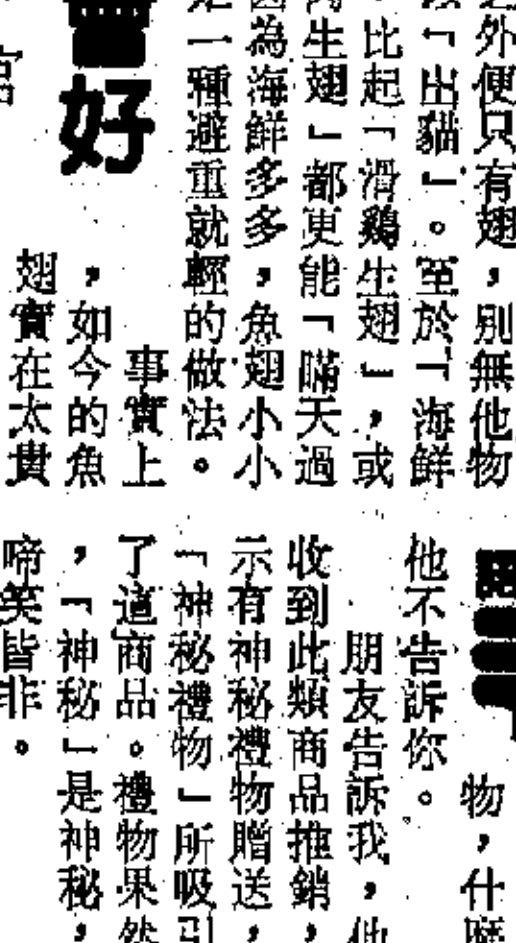 外便只有翅，別無他物
「出貓」。至於「海鮮
比起「滑鷄生翅」，或
生翅」都更能「瞞天過
為海鮮多多，魚翅小小
一種避重就輕的做法。
事實上
，如今的魚
翅實在太貴
好
物，什麼
他不告訴你。
朋友告訴我，他
收到此類商品推銷，
示有神秘禮物贈送，
「神秘禮物」所吸引
了這商品。禮物果然
，「神秘」是神秘，
啼笑皆非。